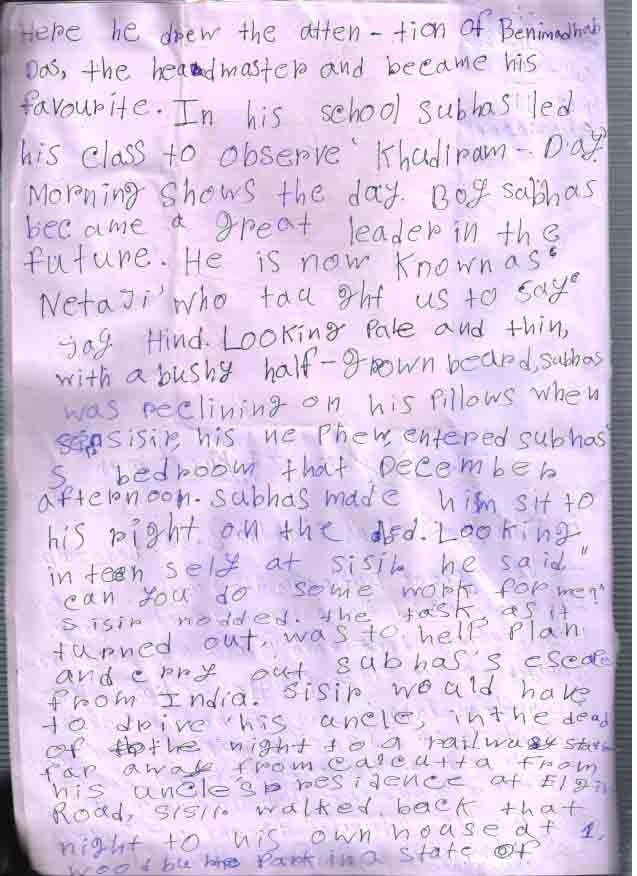 Here he drew the atten - tion of Benimadhab
Das, the headmaster and became his
favourite. In his school subhas led
his class to observe ' Khudiram - Day.
Morning shows the day. Boy sabhas
became a great leader in the
future. He is now known as '
Netaji' who taught us to say "
jay Hind. Looking Pale and thin,
with a bushy half-grown beard, subhas
was reclining on his Pillows when
sisir, his nePhew, entered subhas'
s bedroom that December
afternoon. subhas made him sit to
his right on the bed. Looking
in ten sely at sisir he said "
can you do some work for me?"
sisir nodded. the task, as it
turned out, was to help Plan
and crry out subhas's escape
from India. sisir would have
to drive his uncle, in the dead
of the night to a railway station
far away from calcutta from
his uncle's residence at Elgin
Road, sisir walked back that
night to his own house at 1,
wood bu Park in a state of